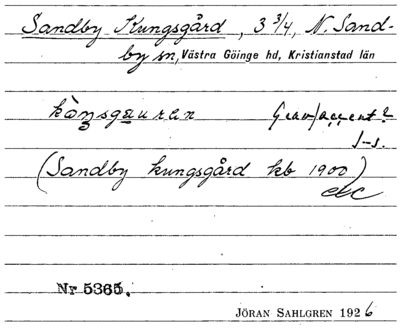 Sandby Kungsgård, 3 3/4, N. Sand-
by sn, Västra Göinge hd, Kristianstad län
Grav/accent?
(Sandby kungsgård kb 1900)
Nr 5365.
JÖRAN SAHLGREN 1926